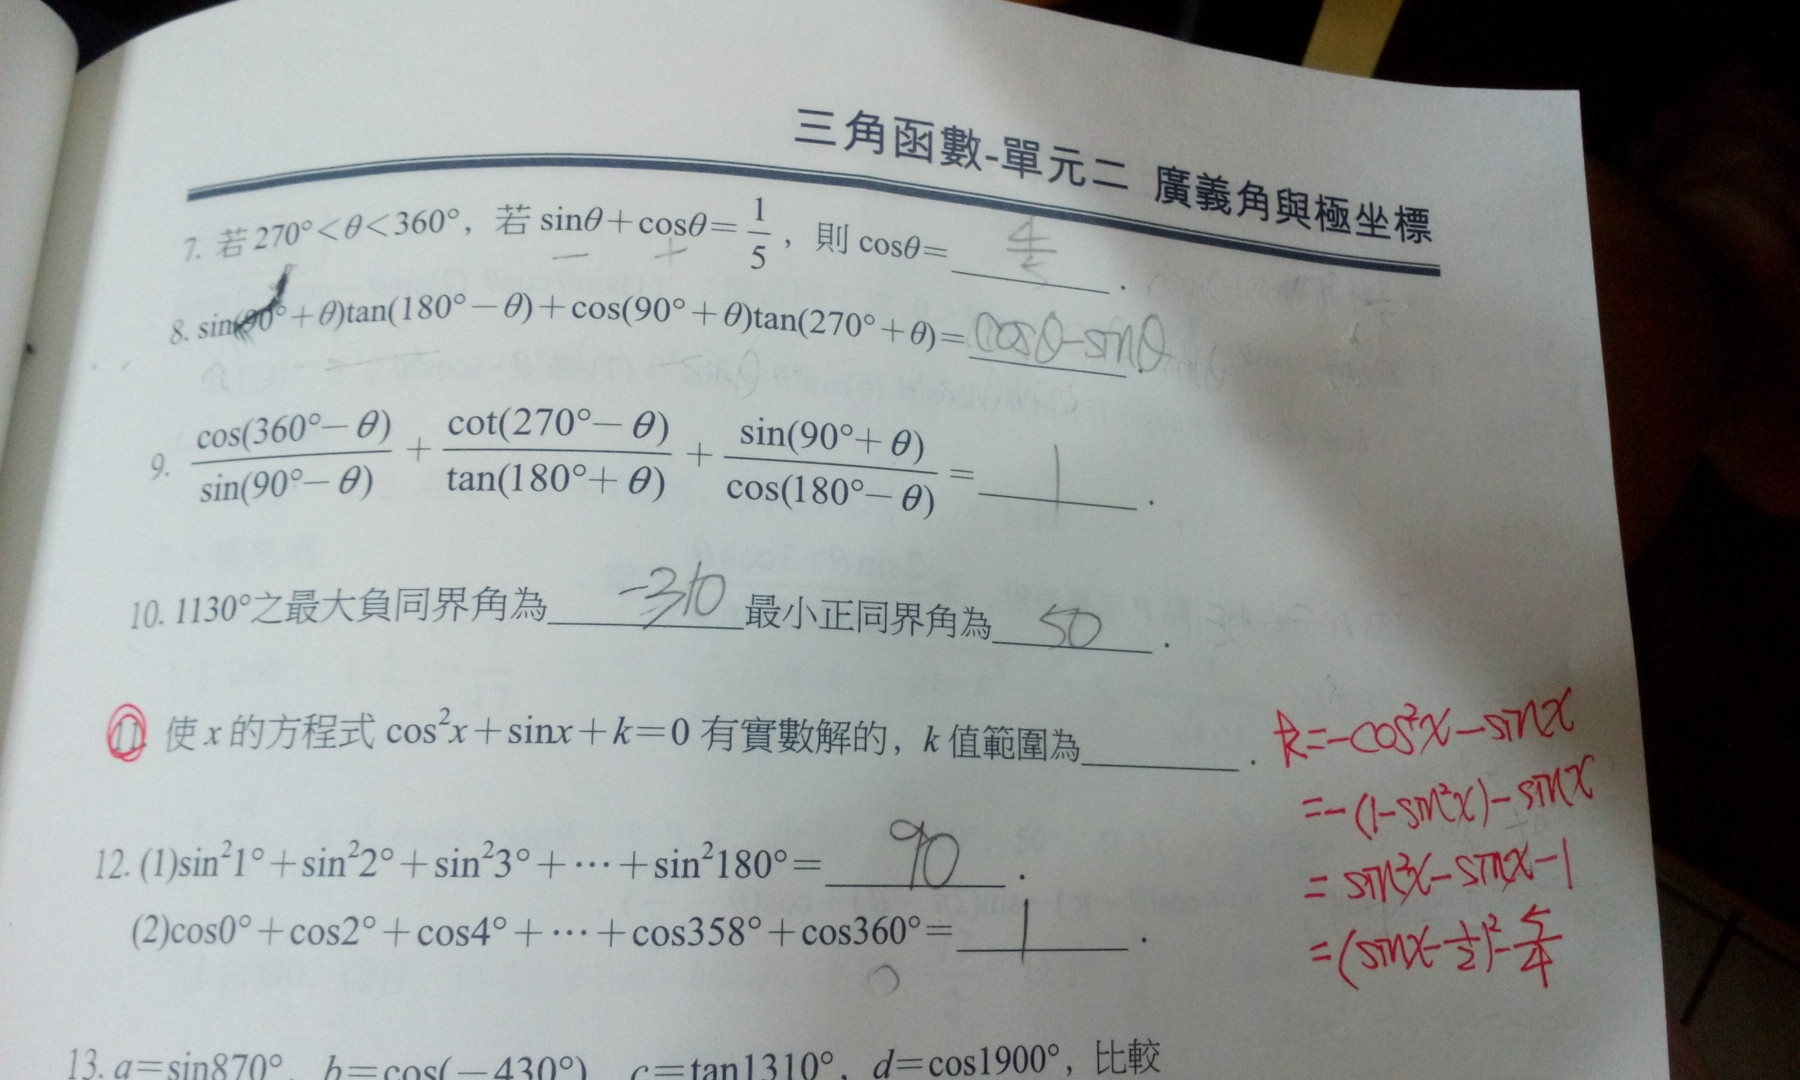 三角函數-單元二 廣義角與極坐標
7. 若 270°<θ<360°，若 sinθ+cosθ=1/5，則 cosθ= 4/5 .
− +
8. sin(90°+θ)tan(180°−θ)+cos(90°+θ)tan(270°+θ)= cosθ-sinθ .
9. cos(360°−θ)/sin(90°−θ) + cot(270°−θ)/tan(180°+θ) + sin(90°+θ)/cos(180°−θ) = 1 .
10. 1130°之最大負同界角為 -310 最小正同界角為 50 .
11. 使 x 的方程式 cos²x+sinx+k=0 有實數解的，k 值範圍為______ .
k=-cos²x-sinx
=-(1-sin²x)-sinx
=sin²x-sinx-1
=(sinx-1/2)²-5/4
12. (1)sin²1°+sin²2°+sin²3°+⋯+sin²180°= 90 .
(2)cos0°+cos2°+cos4°+⋯+cos358°+cos360°= 1 .
0
13. a=sin870°，b=cos(−430°)，c=tan1310°，d=cos1900°，比較